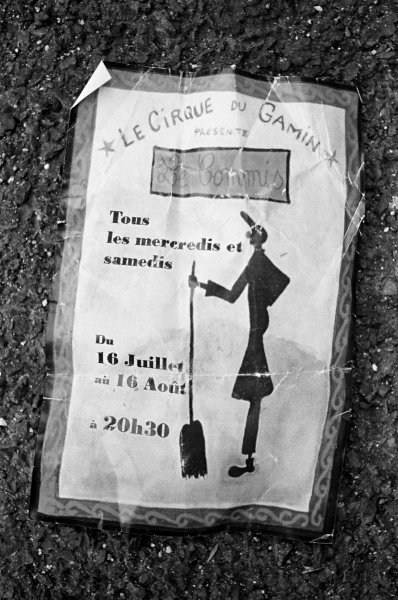 LE CIRQUE DU GAMIN
PRÉSENTE
Le Commis
Tous
les mercredis et
samedis
Du
16 Juillet
au 16 Août
à 20h30